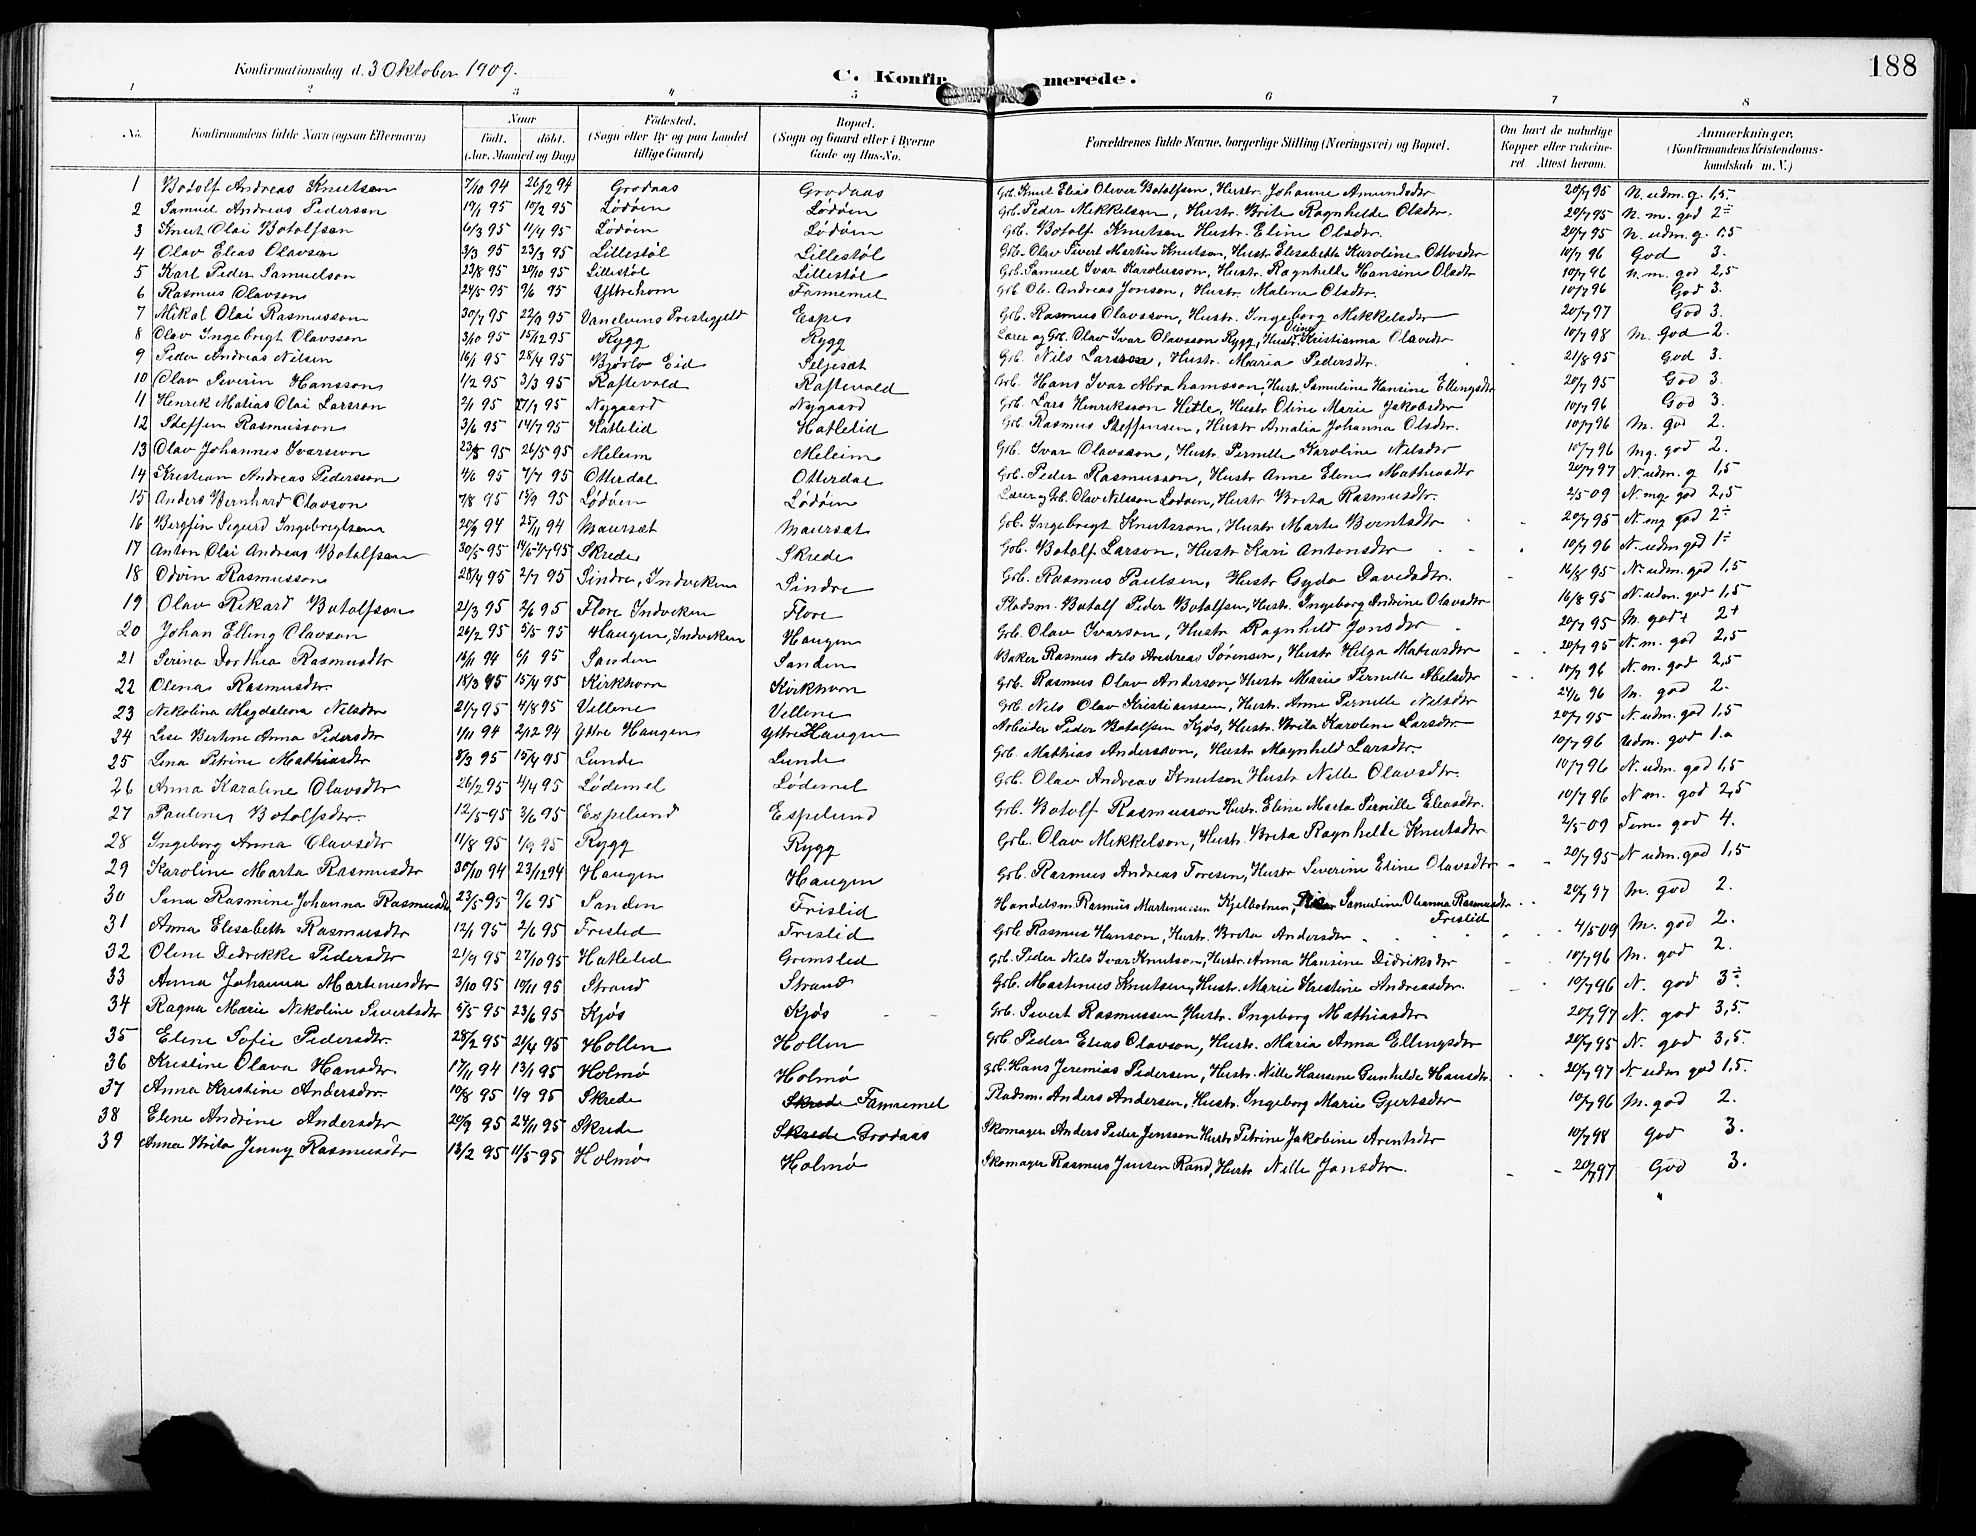 188
Konfirmationsdag d. 3 Oktober 1909.
C. Konfirmerede.
1 2 3 4 5 6 7 8
No. Konfirmandens fulde Navn (ogsaa Efternavn) Naar Født. døbt. (Aar, Maaned og Dag) Fødested. (Sogn eller By og paa Landet tillige Gaard) Bopæl. (Sogn og Gaard eller i Byerne Gade og Hus-No. Forældrenes fulde Navne, borgerlige Stilling (Næringsvei) og Bopæl. Om havt de naturlige Kopper eller vakcineret. Attest herom. Anmærkninger. (Konfirmandens Kristendomskundskab m. V.)
1 Botolf Andreas Knutsen 7/10 94 26/12 94 Grodaas Grodaas Grb. Knut Elias Oliver Botolfsen, Hustr. Johanne Amundsdtr 20/7 95 N. udm. g. 1,5
2 Samuel Andreas Pedersen 19/1 95 10/2 95 Lødøen Lødøen Grb. Peder Mikkelsen, Hustr. Brite Ragnhilde Olsdtr. 20/7 95 N. m. god 2÷
3 Knut Olai Botolfsen 6/3 95 11/4 95 Lødøen Lødøen Grb. Botolf Knutsen Hustr. Eline Olsdtr. 20/7 95 N. udm. g. 1,5
4 Olav Elias Olavsen 3/3 95 23/3 95 Lillestøl Lillestøl Grb. Olav Sivert Martin Knutsen, Hustr. Elisabeth Karoline Ottosdtr 10/7 96 God 3.
5 Karl Peder Samuelson 23/8 95 20/10 95 Lillestøl Lillestøl Grb. Samuel Ivar Karolusson, Hustr. Ragnhilde Hansine Olsdtr 10/7 96 N. m. god 2,5
6 Rasmus Olavson 24/5 95 9/6 95 Yttrehorn Tannemel Grb. Ol. Andreas Jonson, Hustr. Maline Olsdtr. 10/7 96 God 3.
7 Mikal Olai Rasmusson 30/7 95 22/9 95 Vanelvens Prestegjeld Espe Grb. Rasmus Olavsson, Hustr. Ingeborg Mikkelsdtr 20/7 97 God 3.
8 Olav Ingebrigt Olavsson 3/10 95 15/12 95 Rygg Rygg Lærer og Grb. Olav Ivar Olavsson Rygg, Hustr. Oline Kristianna Olavsdtr 10/7 98 M. God 2.
9 Peder Andreas Nilsen 16/1 95 28/4 95 Bjørlo Eid Seljesæt Grb. Nils Larsson, Hustr. Maria Pedersdtr. 21/8 95 God 3.
10 Olav Severin Hansson 1/2 95 3/3 95 Raftevold Raftevold Grb. Hans Ivar Abrahamsson, Hustr. Samuline Hansine Ellingsdtr 20/7 95 God 3.
11 Henrik Matias Olai Larsson 2/1 95 27/1 95 Nygaard Nygaard Grb. Lars Henriksson Hetle, Hustr Oline Marie Jakobsdtr 10/7 96 God 3.
12 Steffen Rasmusson 3/6 95 14/7 95 Hatlelid Hatlelid Grb. Rasmus Steffensen, Hustr Amalia Johanna Olsdtr. 10/7 96 M. god 2.
13 Olav Johannes Ivarsson 23/3 95 26/5 95 Meleim Meleim Grb. Ivar Olavsson, Hustr. Pernille Karoline Nilsdtr 10/7 96 Mg. god 2.
14 Kristian Andreas Pedersson 4/6 95 7/7 95 Otterdal Otterdal Grb. Peder Rasmusson, Hustr Anne Elene Mathiasdtr 20/7 97 N. udm. g 1,5
15 Anders Bernhard Olavson 7/8 95 15/9 95 Lødøen Lødøen Lærer og Grb. Olav Nilsson Lødøen, Hustr Brita Rasmusdtr. 2/5 09 N. mg. god 2,5
16 Bergfin Sigurd Ingebrigtsen 20/9 94 25/11 94 Maursæt Maursæt Grb. Ingebrigt Knutsson, Hustr Marte Berntsdtr 20/7 95 N. mg god 2÷
17 Anton Olai Andreas Botolfsen 30/5 95 14/6-7/7 95 Skrede Skrede Grb. Botolf Larson, Hustr Kari Antonsdtr 10/7 96 N. udm god 1÷
18 Odvin Rasmusson 28/4 95 2/7 95 Sindre, Indviken Sindre Grb. Rasmus Paulsen, Hustr Gyda Davidsdtr. 16/8 95 N. udm. god 1,5
19 Olav Rikard Botolfson 21/3 95 2/6 95 Flore Indviken Flore Pladsm. Botolf Peder Botolfsen, Hustr. Ingeborg Andrine Olavsdtr 16/8 95 N. udm. god 1,5
20 Johan Elling Olavson 26/2 95 5/5 95 Haugen, Indviken Haugen Grb. Olav Ivarson, Hustr Ragnhild Jonsdtr 20/7 95 M. god+ 2+
21 Serina Dorthea Rasmusdtr 16/11 94 6/1 95 Sanden Sanden Baker Rasmus Nils Andreas Sørensen, Hustr Helga Matiasdtr 20/7 95 N. m. god 2,5
22 Olina Rasmusdtr. 18/3 95 15/4 95 Kirkhorn Kirkhorn Grb. Rasmus Olav Anderson, Hustr Marie Pernille Abelsdtr 10/7 96 N. m. god 2,5
23 Nikolina Magdalena Nilsdtr 21/7 95 4/8 95 Vellene Vellene Grb Nils Olav Kristiansen, Hustr. Anne Pernille Nilsdtr 24/6 96 M. god 2.
24 Lise Bertine Anna Pedersdtr 1/11 94 2/12 94 Ytre Haugen Ytre Haugen Arbeider Peder Botolfsen Kjøs, Hustr. Brita Karoline Larsdtr 20/7 95 N. udm. god 1,5
25 Lena Petrine Mathiasdtr 8/3 95 15/4 95 Lunde Lunde Grb. Mathias Andersson, Hustr. Magnhild Larsdtr 10/7 96 Udm. god 1.a
26 Anna Karoline Olavsdtr 26/2 95 4/4 95 Lødemel Lødemel Grb. Olav Andreas Knutson Hustr Nille Olavsdtr. 10/7 96 N. udm. god 1,5
27 Pauline Botolfsdtr. 12/5 95 3/6 95 Espelund Espelund Grb. Botolf Rasmusson Hustr. Eline Marta Pernille Eliasdtr. 10/7 96 N m. god 2,5
28 Ingeborg Anna Olavsdtr 11/8 95 1/9 95 Rygg Rygg Grb. Olav Mikkelson, Hustr. Brita Ragnhilde Knutsdtr 2/5 09 Tem. god 4.
29 Karoline Marta Rasmusdtr 30/10 94 23/12 94 Haugen Haugen Grb. Rasmus Andreas Toresen, Hustr Severine Eline Olavsdtr 20/7 95 N udm. god 1,5
30 Sana Rasmine Johanna Rasmusdtr 23/5 95 9/6 95 Sanden Frislid Handelsm. Rasmus Martinussen Kjelbotnen, Samuline Olianna Rasmusdtr Frislid 20/7 97 M. god 2.
31 Anna Elisabeth Rasmusdtr 12/1 95 2/6 95 Frislid Frislid Grb Rasmus Hanson, Hustr. Brita Andersdtr 4/5 09 M. god 2.
32 Oline Dedrikke Pedersdtr 21/9 95 27/10 95 Hatlelid Grimslid Grb. Peder Nils Ivar Knutson, Hustr. Anna Hansine Didriksdtr 10/7 96 M. god 2.
33 Anna Johanna Martinusdtr 3/10 95 10/11 95 Strand Strand Grb. Martinus Knutsen, Hustr. Marie Kristine Andreasdtr. 10/7 96 N. god 3÷
34 Ragna Marie Nikoline Sivertsdtr 5/5 95 23/6 95 Kjøs Kjøs Grb. Sivert Rasmussen, Hustr. Ingeborg Mathiasdtr 20/7 97 N. god 3,5.
35 Eline Sofie Pedersdtr. 28/2 95 21/4 95 Hollen Hollen Grb. Peder Elias Olavson, Hustr. Maria Anna Ellingsdtr 20/7 95 N. god 3,5.
36 Kristine Olava Hansdtr 17/11 94 13/1 95 Holmø Holmø grb. Hans Jeremias Pedersen, Hustr. Nille Hansine Gunhilde Hansdtr. 20/7 97 N udm god 1,5.
37 Anna Kristine Andersdtr. 10/8 95 1/9 95 Skrede Skrede Tannemel Pladsm. Anders Andersen, Hustr. Ingeborg Marie Gjertsdtr 10/7 96 M. god 2.
38 Eline Andrine Andersdtr 20/9 95 24/11 95 Skrede Skrede Grodaas Skomager Anders Peder Jensson Hustr Petrine Jakobine Arentsdtr 10/7 98 God 3.
39 Anna Brita Jenny Rasmusdtr 13/2 95 11/5 95 Holmø Holmø Skomager Rasmus Jensen Rand, Hustr Nille Jonsdtr. 20/7 97 God 3.